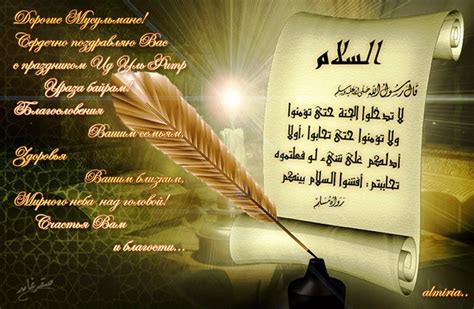 Дорогие Мусульмане!
Сердечно поздравляю Вас
с праздником Ид Уль Фитр
Ураза байрам!
Благословения
Вашим семьям,
Здоровья
Вашим близким,
Мирного неба над головой!
Счастья Вам
и благости...
السلام
قال رسول الله صلى الله عليه وسلم
لا تدخلوا الجنة حتى تؤمنوا
ولا تؤمنوا حتى تحابوا، أولا
أدلكم على شيء لو فعلتموه
تحاببتم: أفشوا السلام بينكم
رواه مسلم
almiria..